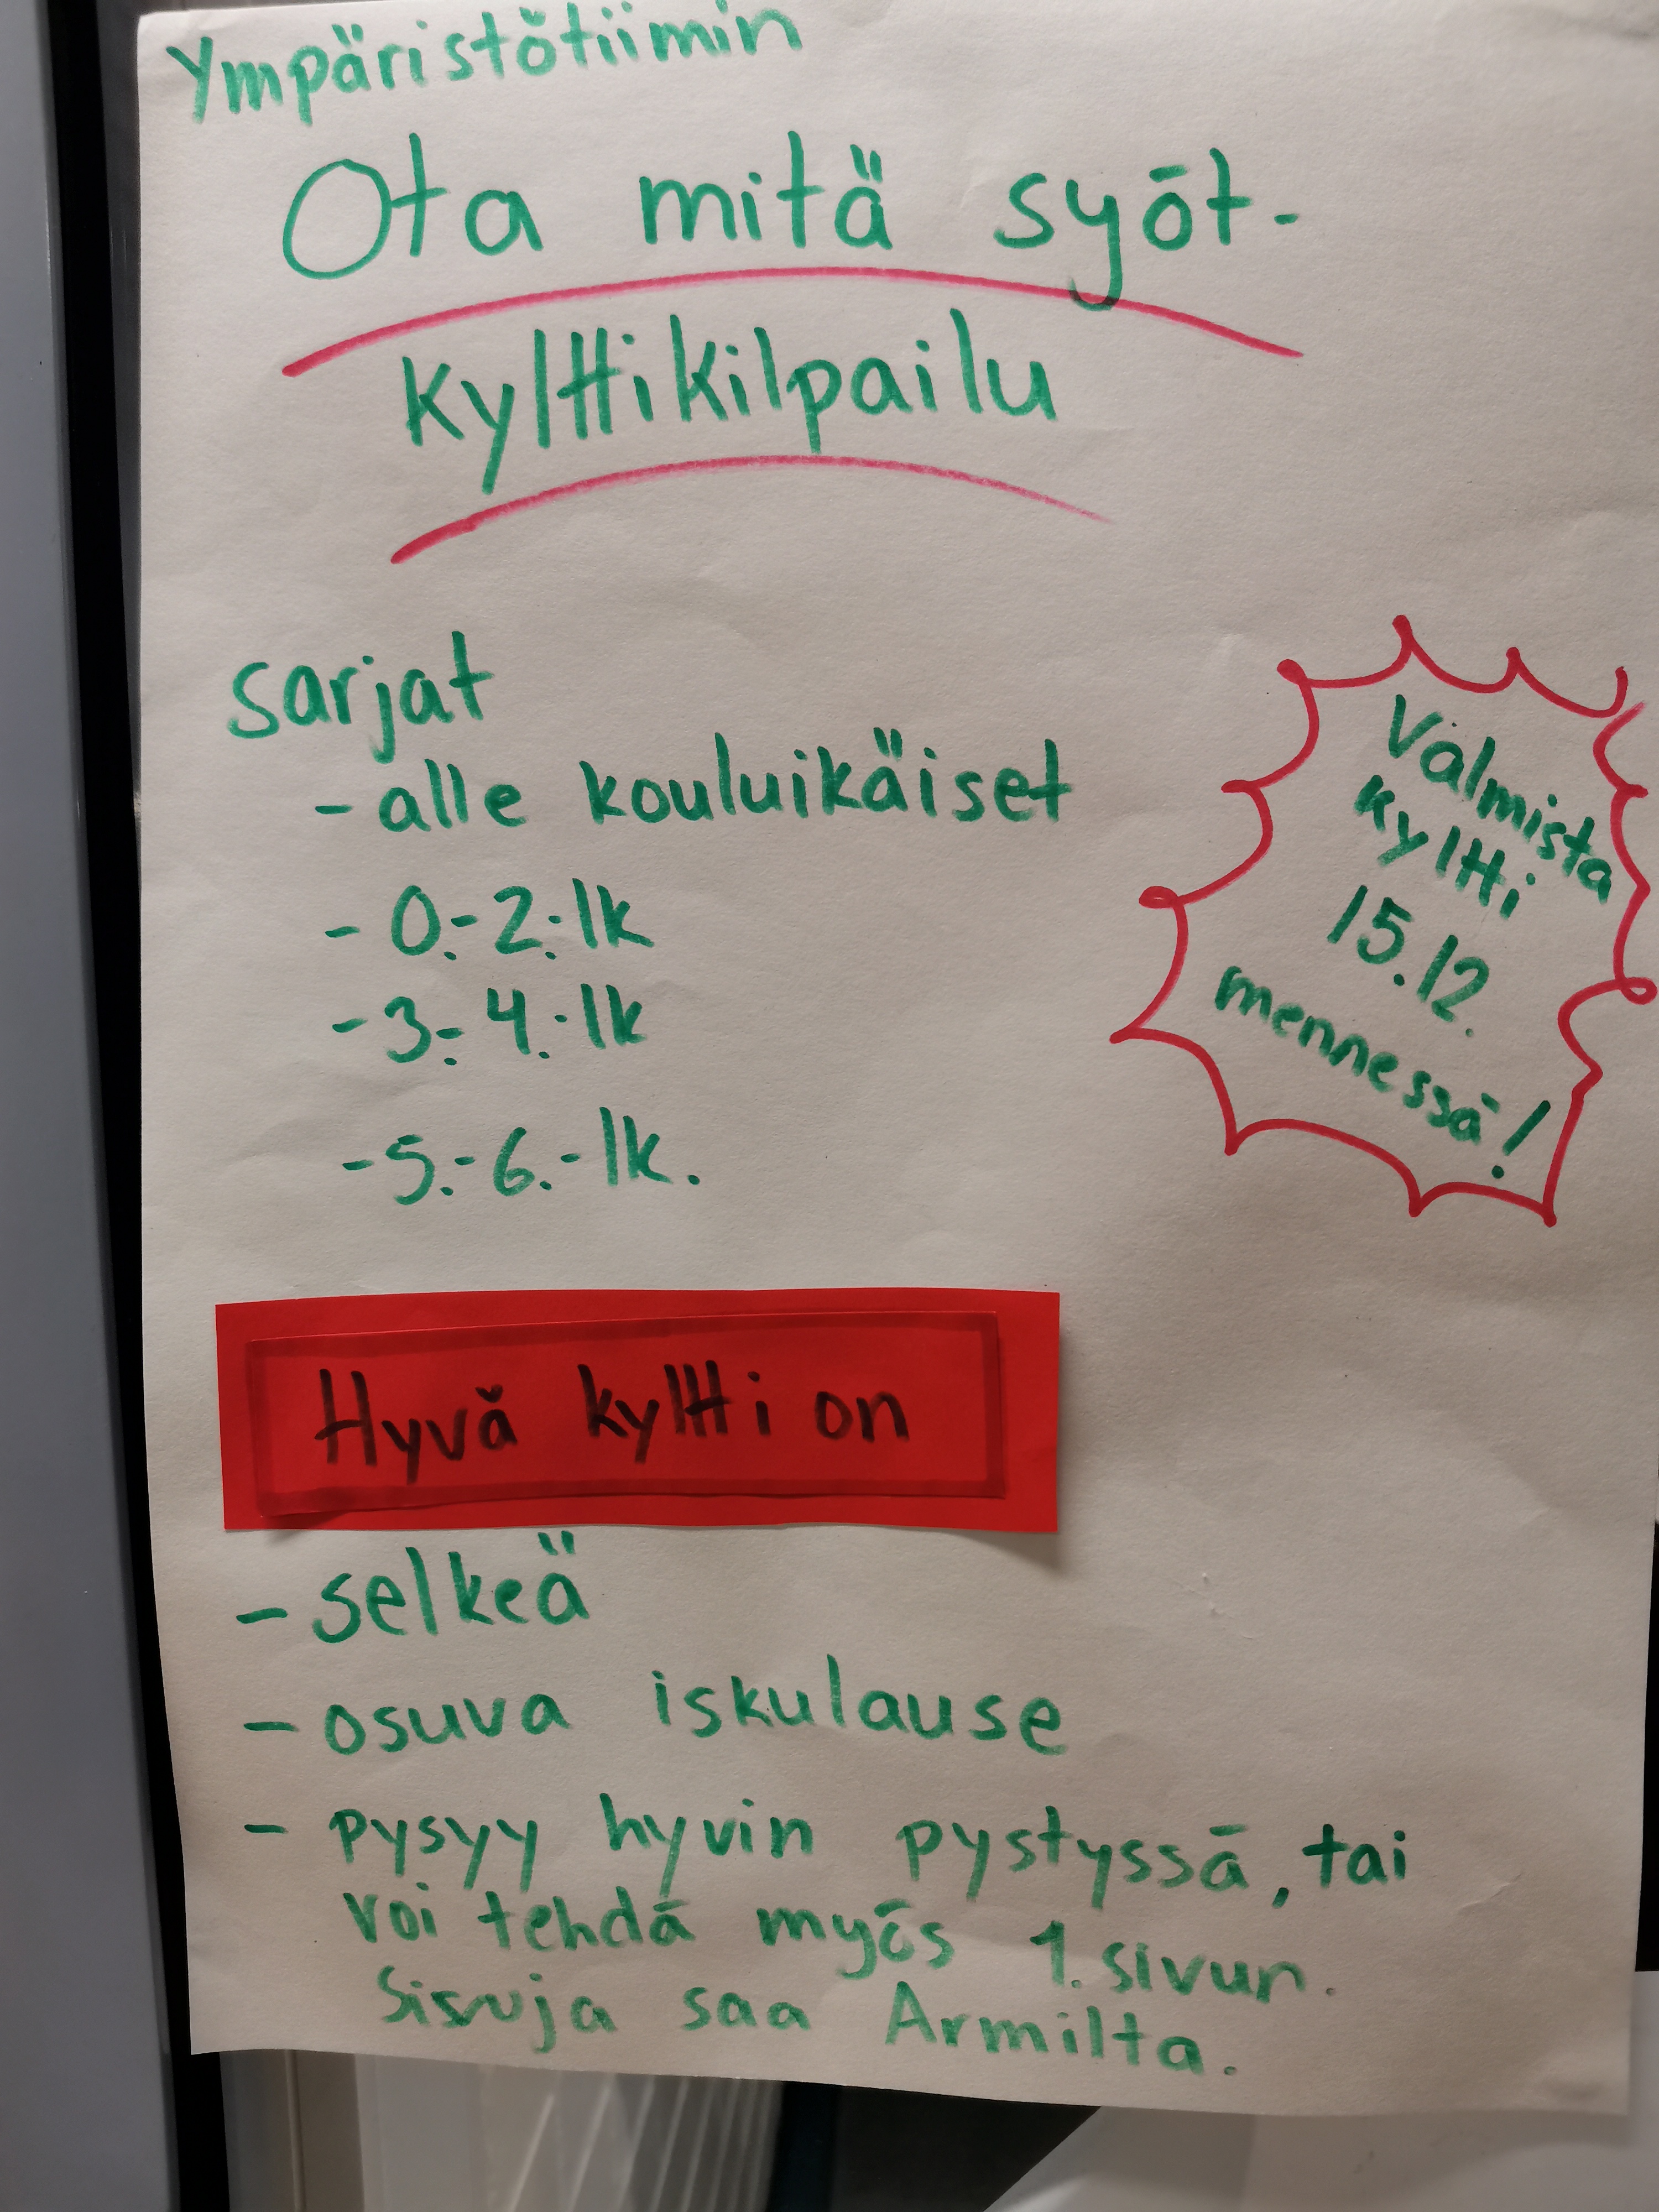 Ympäristötiimin
Ota mitä syöt-
kylttikilpailu
sarjat
- alle kouluikäiset
- 0.-2.-lk
- 3.-4.-lk
- 5.-6.-lk.
Valmista
kyltti
15.12.
mennessä!
Hyvä kyltti on
- selkeä
- osuva iskulause
- pysyy hyvin pystyssä, tai
voi tehdä myös 1. sivun.
Sisvuja saa Armilta.